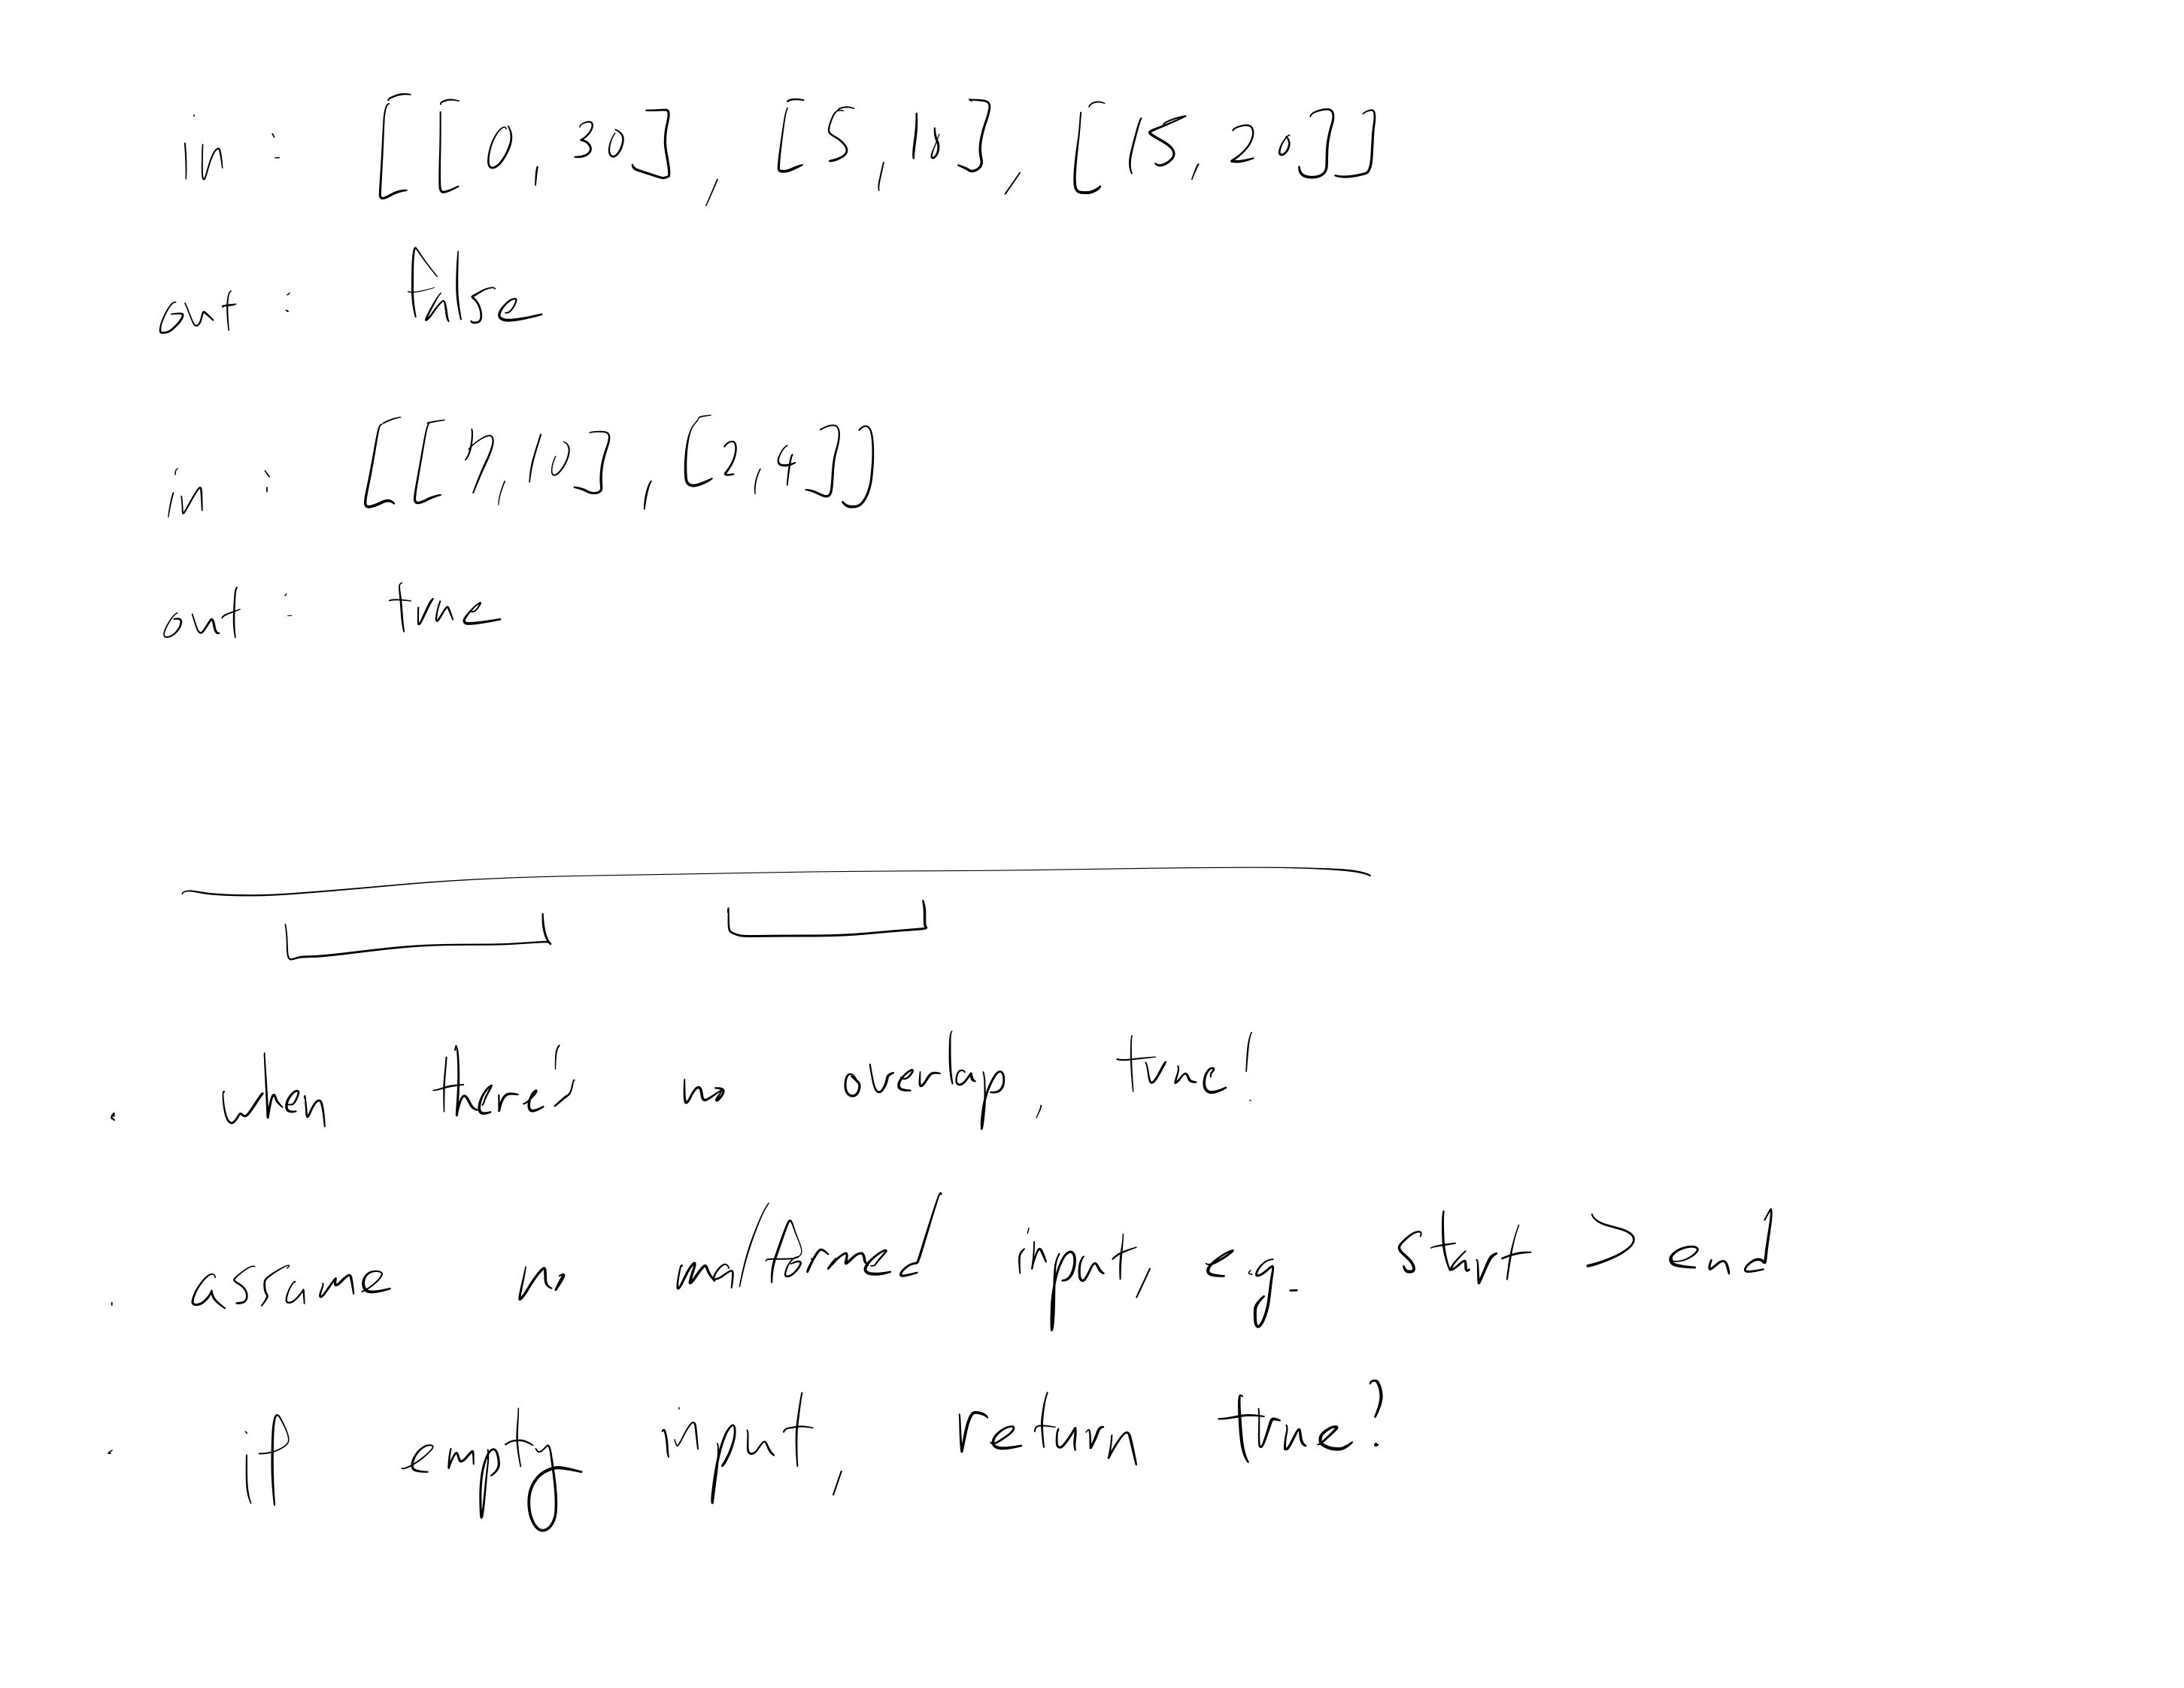 in : [[0, 30], [5, 10], [15, 20]]
out : false
in : [[7, 10], [2, 4]]
out : true
. when there's no overlap, true!
. assume no malformed input, eg. start > end
. if empty input, return true?